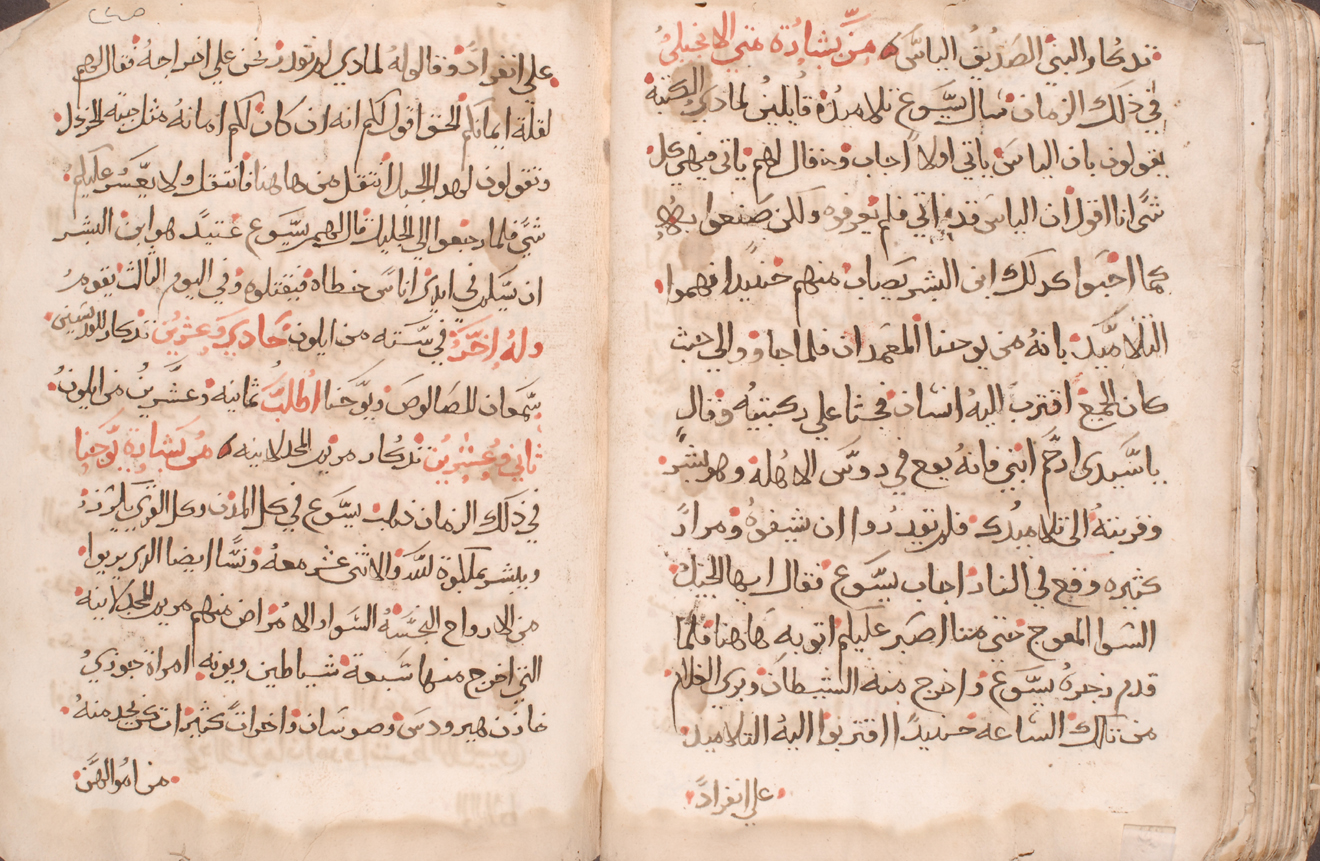 تدكار النبي الصديق الياس من بشارة متي الانجيلي
في ذلك الزمان سال يسوع تلاميذه قايلين لمادي الكتبه
يقولون بان الياس ياتي اولا اجاب وقال لهم ياتي ويهي كل
شي انا اقول ان الياس قد اتي فلم يعرفوه ولكن صنعوا به
كما احبوا كدلك ابن البشر يصاب منهم حنيدا فهموا
التلاميد بانه من يوحنا المعمدان فلما جاوو الي حيث
كان الجمع اقترب اليه انسان فجثا علي ركبتيه وقال
ياسيدي ارحم ابني فانه يوع في روس الاهله وهو بشر
وقربته الي تلاميدك فلم يقدروا ان يشفوه ومرارا
كثيره وقع في النار اجاب يسوع فقال ايها الجيل
الشوا المعوج حتي متا اصبر عليكم اتو به هاهنا فلما
قدم زجره يسوع واخرج منه الشيطان وبري الغلام
من تلك الساعه حنيدا اقتربوا اليه التلاميد
علي انفراد
علي انفراد وقالو له لمادي لم نقدر نحن علي اخراجه فقال لهم
لقلة ايمانكم الحق اقول لكم انه ان كان لكم امانه مثل حبة الخردل
وتقولون لهدا الجبل انتقل من هاهنا فانتقل ولا يعسر عليكم
شي فلما رجعوا الي الجليل قال لهم يسوع عتيد هو ابن البشر
ان يسلم في ايدي اناس خطاه فيقتلوه وفي اليوم التالت يقوم
وله اخر في سته من ايلون حادي وعشرين تدكار للقديسين
سمعان للصالوص ويوحنا اطلب ثمانيه وعشرين من ايلون
ثاني وعشرين تدكار مريم المجدلانيه من بشارة يوحنا
في ذلك الزمان يسوع في كل المدن وكل القري يكرز
ويبشر بملكوة الله والاثني عشر معه ونسا ايضا الدي بريوا
من الارواح النجسه السوا والامراض منهم مريم المجدلانيه
التي اخرج منها سبعة شياطين ويونه امراة جوزي
خازن هيرودس وصوسان واخرات كثيرات كن يخدمنه
من اموالهن